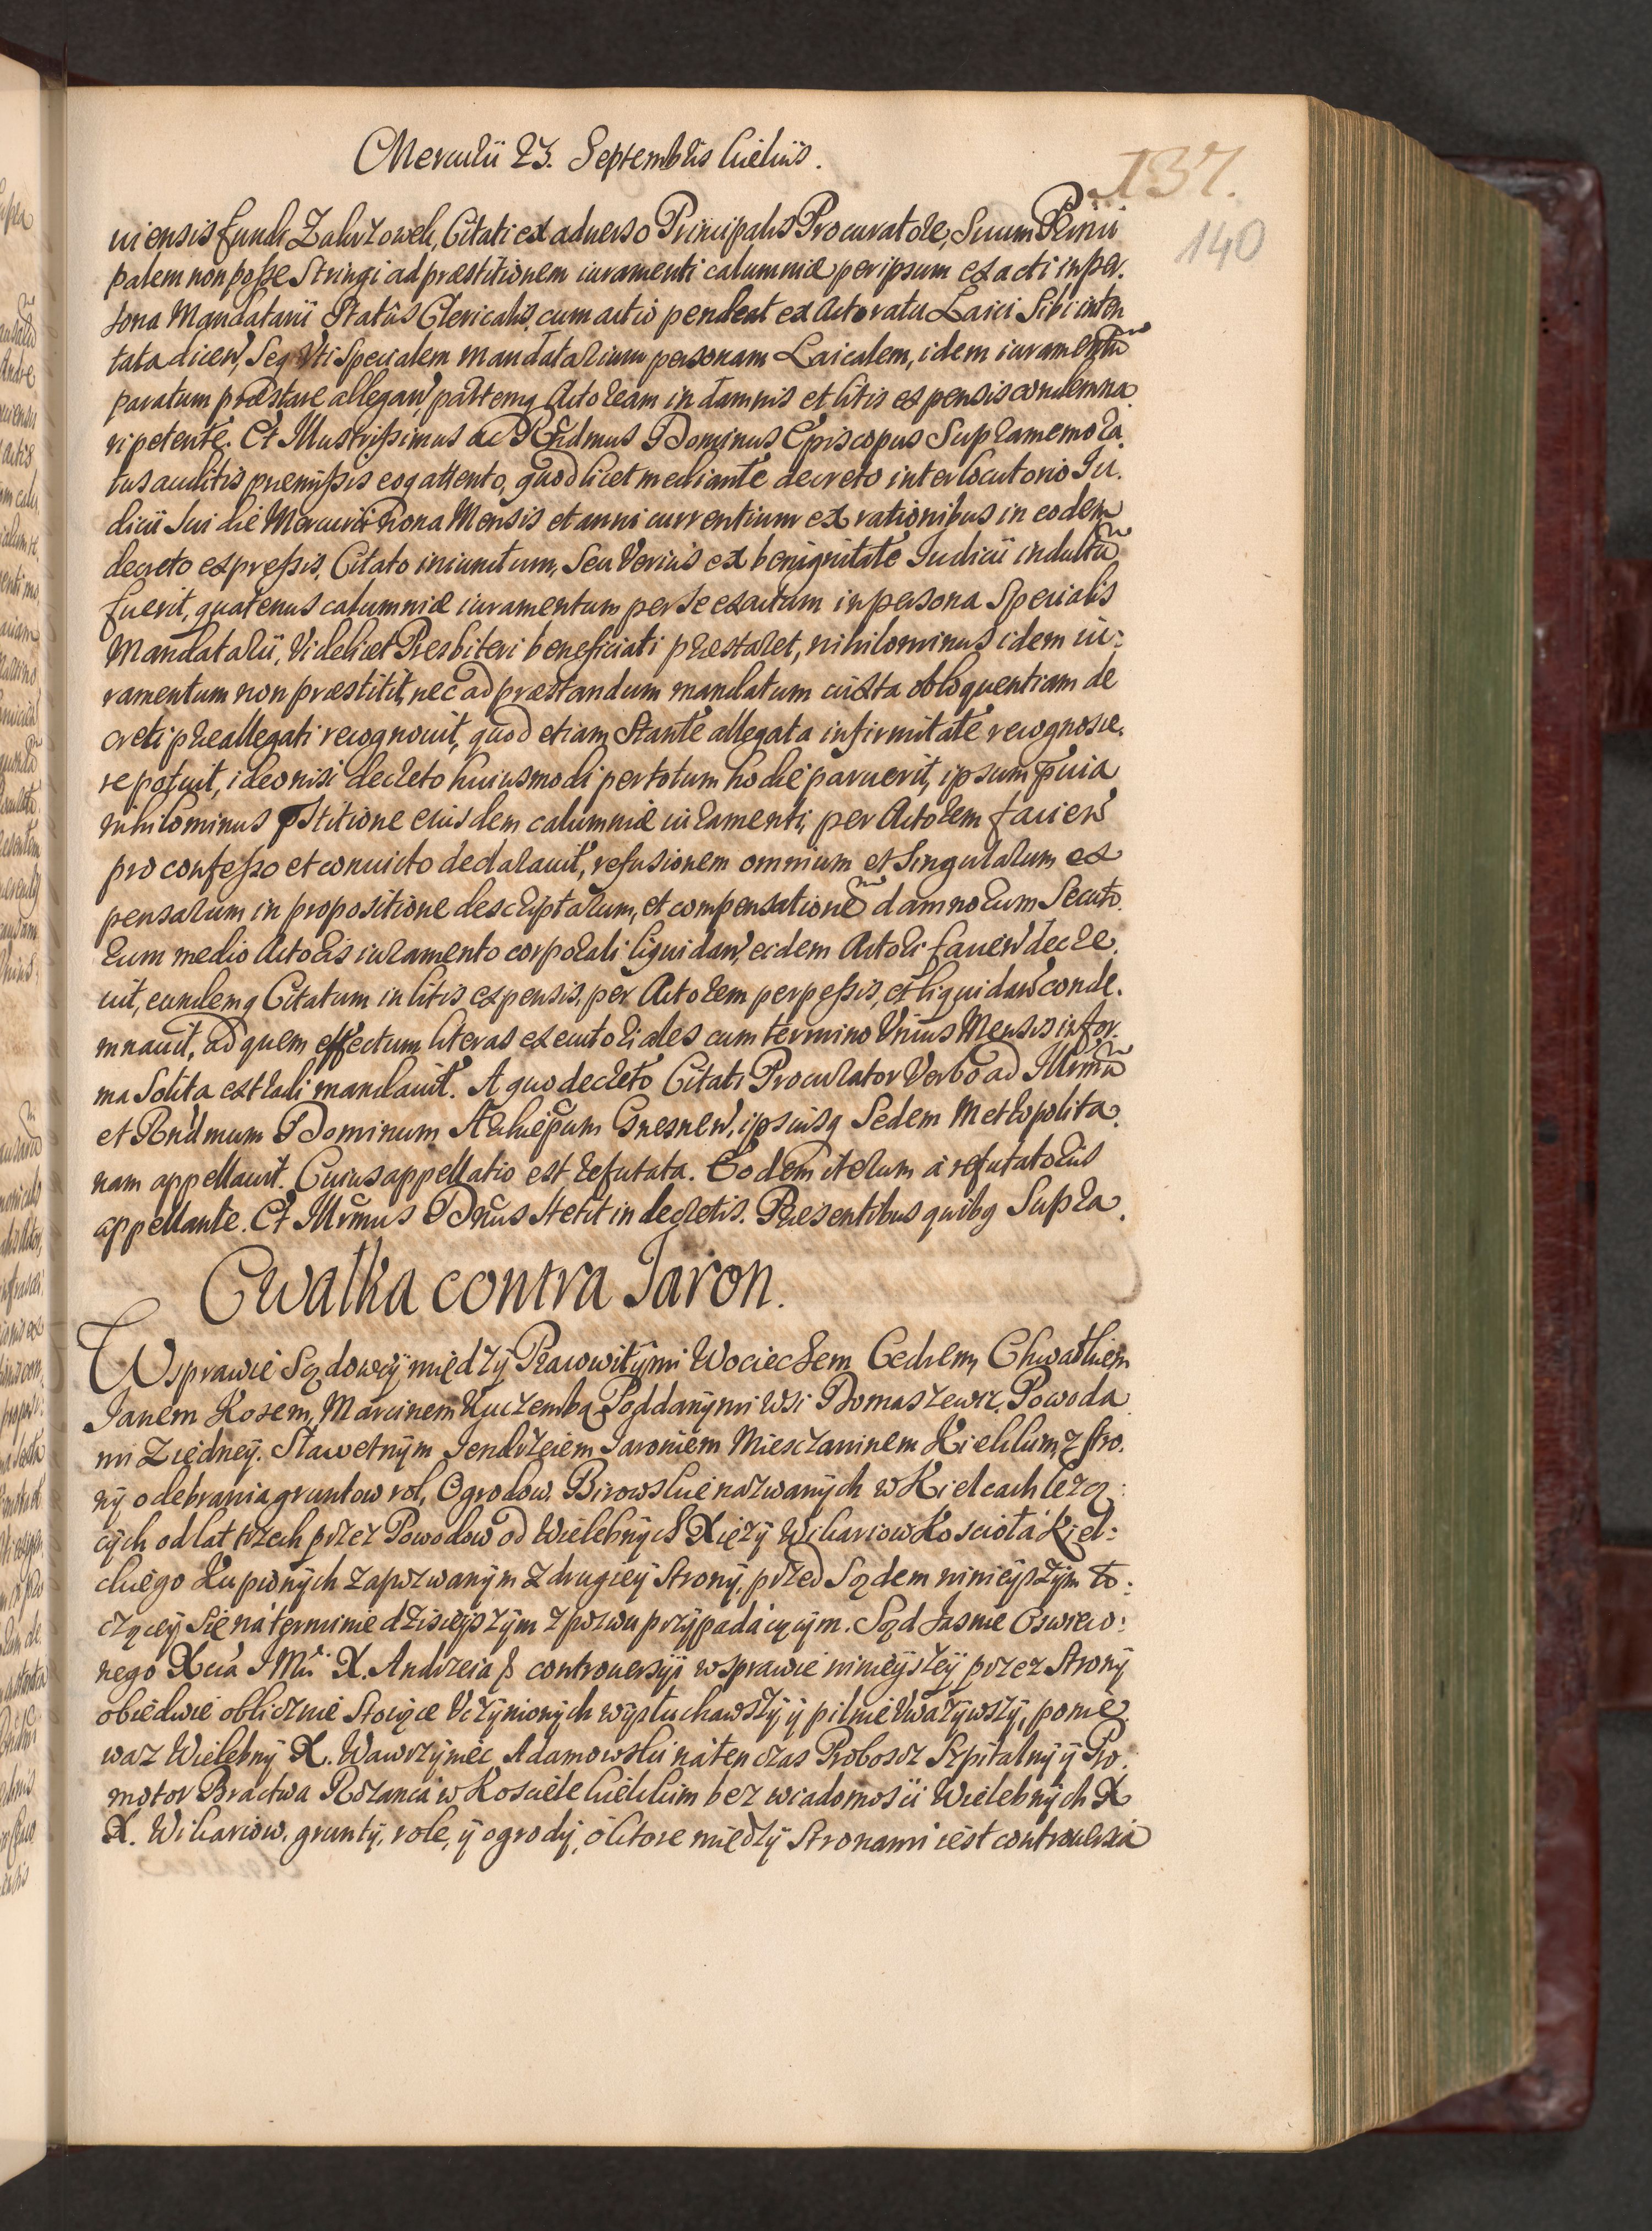 Mercurii 23. Septembris Kielciis.
137.
140
uiensis fundi Zakrzowek, Citati ex aduerso Principalis Procuratore, Suum Princi
palem non posse Stringi ad præstitionem iuramenti calumniæ per ipsum exacti in per.
sona Mandatarii Statûs Clericalis, cum actio pendeat ex Actoratu Laici Sibi inten
tata dicen, Seq Vti Specialem mandatarium personam Laicalem, idem iuramentu
paratum præstare allegan, partemq Actoream in damnis et litis expensis condemna
ri petente. Et Illustrissimus ac Rndmus Dominus Episcopus Supramemora.
tus auditis præmissis eoq attento, quod licet mediante decreto interlocutorio Iu.
dicii Sui die Mercurii Nona Mensis et anni currentium ex rationibus in eodem
decreto expressis, Citato iniunctum, Seu Verius ex benignitate Iudicii indultu
fuerit, quatenus calumniæ iuramentum per se exactum in persona Specialis
Mandatarii, Videlicet Presbiteri beneficiati præstaret, nihilominus idem iu:
ramentum non præstitit, nec ad præstandum mandatum iuxta obloquentiam de
creti præallegati recognouit, quod etiam Stante allegata infirmitate recognosce.
re potuit, ideo nisi decreto huiusmodi per totum hodie paruerit, ipsum prævia
nihilominus pstitione eiusdem calumniæ iuramenti, per Actorem facien
pro confesso et conuicto declarauit, refusionem omnium et Singularum ex
pensarum in propositione descriptarum, et compensatione damnorum Secuto.
rum medio Actoris iuramento corporali liquidan, eidem Actori facien decre.
uit, eundemq Citatum in litis expensis, per Actorem perpessis, et liquidan conde.
mnauit, ad quem effectum literas executoriales cum termino Vnius Mensis in for.
ma Solita extradi mandauit. A quo decreto Citati Procurator Verbo ad Illrmu
et Rndmum Dominum Archiepum Gnesnen, ipsiusq Sedem Metropolita.
nam appellauit. Cuius appellatio est refutata. Eodem iterum à refutatoriis
appellante. Et Illrmus Dnus Stetit in decretis. Præsentibus quibq Supra.
Cwalka contra Jaron.
W sprawie Sądowey między Prawowitymi Wociechem Cedrem, Chwalkiem
Janem Kosem, Marcinem Kuczembą Poddanymi wsi Domaszewic, Powoda
mi z iedney. Sławetnym Jendrzeiem Jaroniem Miesczaninem Kielckim, z stro.
ny odebrania gruntow rol, Ogrodow, Birowskie nazwanych w Kielcach leżą:
cych od lat trzech przez Powodow od Wielebnych Xięży Wikariow Kosciołá Kiel:
ckiego Kupionych zapozwanym z drugiey Strony, przed Sądem ninieyszym to:
czącey się ná terminie dzisieyszym z pozwu przypadáiącym. Sąd Jasnie Oswieco:
nego Xcia JMci X. Andrzeia & controuersyi w sprawie ninieyszey przez Strony
obiedwie oblicznie Stoiące Uczynionych wysłuchawszy, y pilnie Uważywszy, ponie
waz Wielebny X. Wawrzyniec Adamowski ná ten czas Proboscz Szpitalny y Pro.
motor Bractwa Rożanca w Kosciele kielckim bez wiadomosci Wielebnych X
X. Wikariow, grunty, role, y ogrody, ò ktore między Stronami iest controuersia